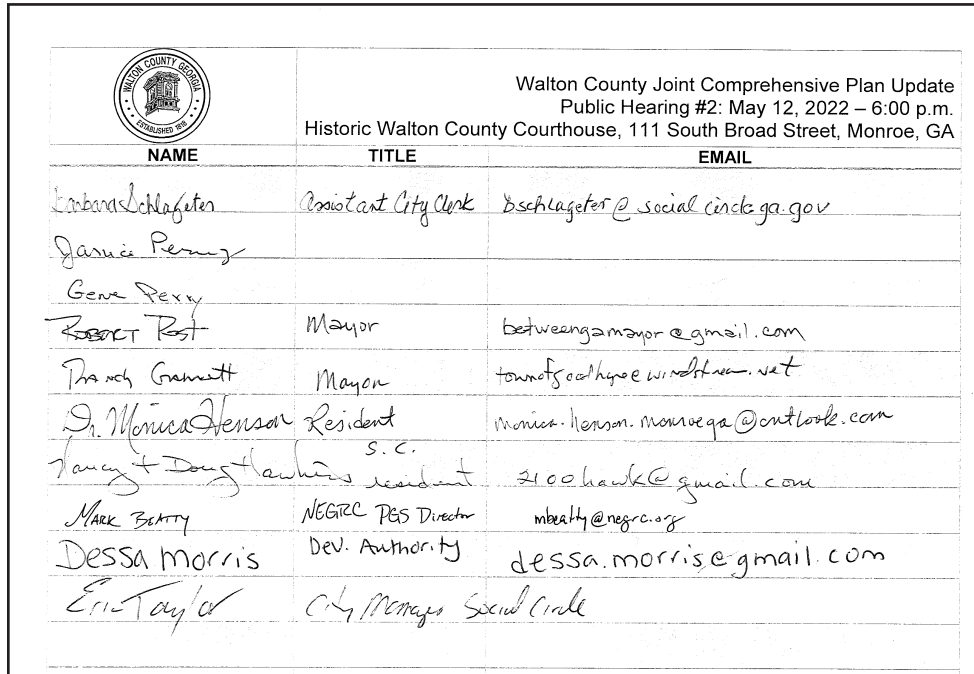 WALTON COUNTY GEORGIA
ESTABLISHED 1818
Walton County Joint Comprehensive Plan Update
Public Hearing #2: May 12, 2022 – 6:00 p.m.
Historic Walton County Courthouse, 111 South Broad Street, Monroe, GA
NAME TITLE EMAIL
Barbara Schlageter Assistant City Clerk bschlageter@socialcirclega.gov
Janice Perry
Gene Perry
ROBERT Post Mayor betweengamayor@gmail.com
Garrett Mayor townofgoodhope@windstream.net
Dr. Monica Henson Resident monica.henson.monroega@outlook.com
Nancy + Doug Hawkins S.C. resident 2100hawk@gmail.com
MARK BEATTY NEGRC PGS Director mbeatty@negrc.org
Dessa Morris Dev. Authority dessa.morris@gmail.com
Eric Taylor City Manager Social Circle